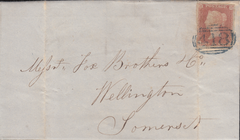 Messrs Fox Brothers & Co
Wellington
Somerset